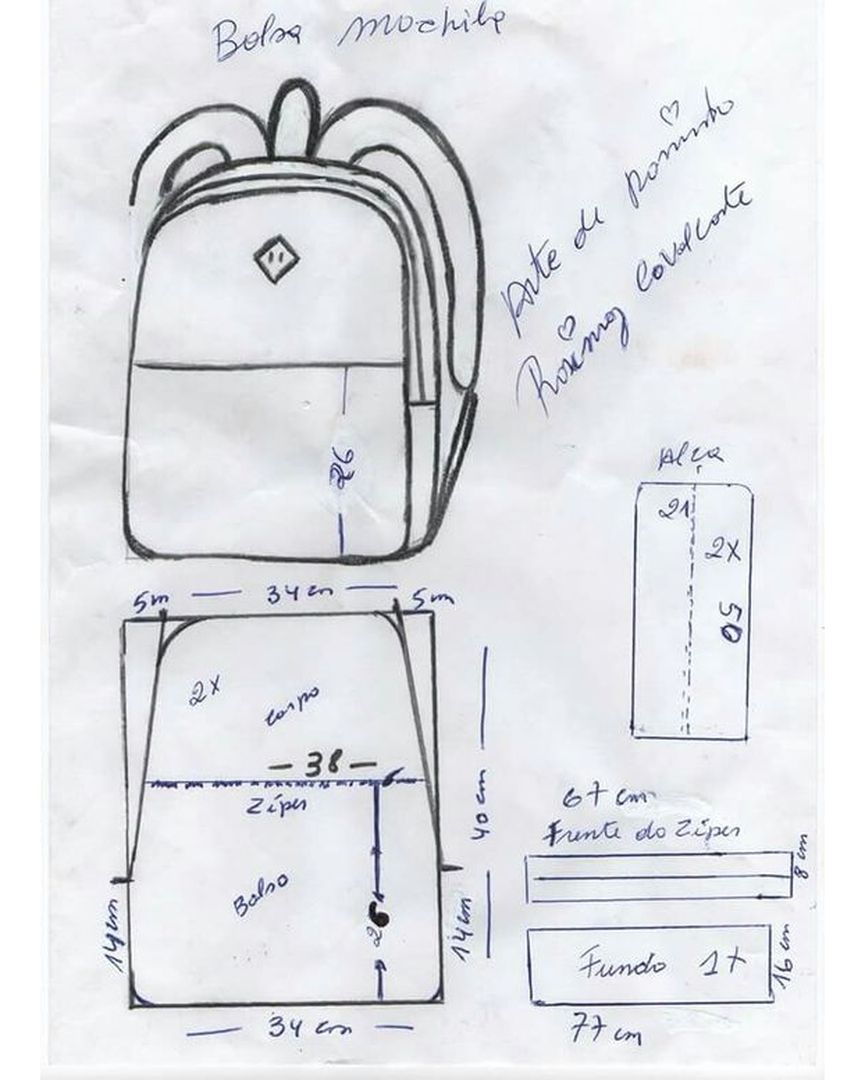 Bolsa mochila
Arte de Rosinha
Rosimay Cavalcante
26
Alça
21
2x
50
5m
34 cm
5m
2x
corpo
- 38 -
Zíper
Bolso
26
40 cm
14cm
14cm
34 cm
67 cm
Frente do Zíper
8 cm
Fundo 1x
16 cm
77 cm